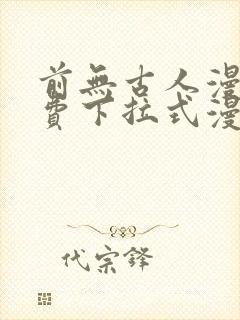 前無古人漫
費下拉式漫
代宗鋒